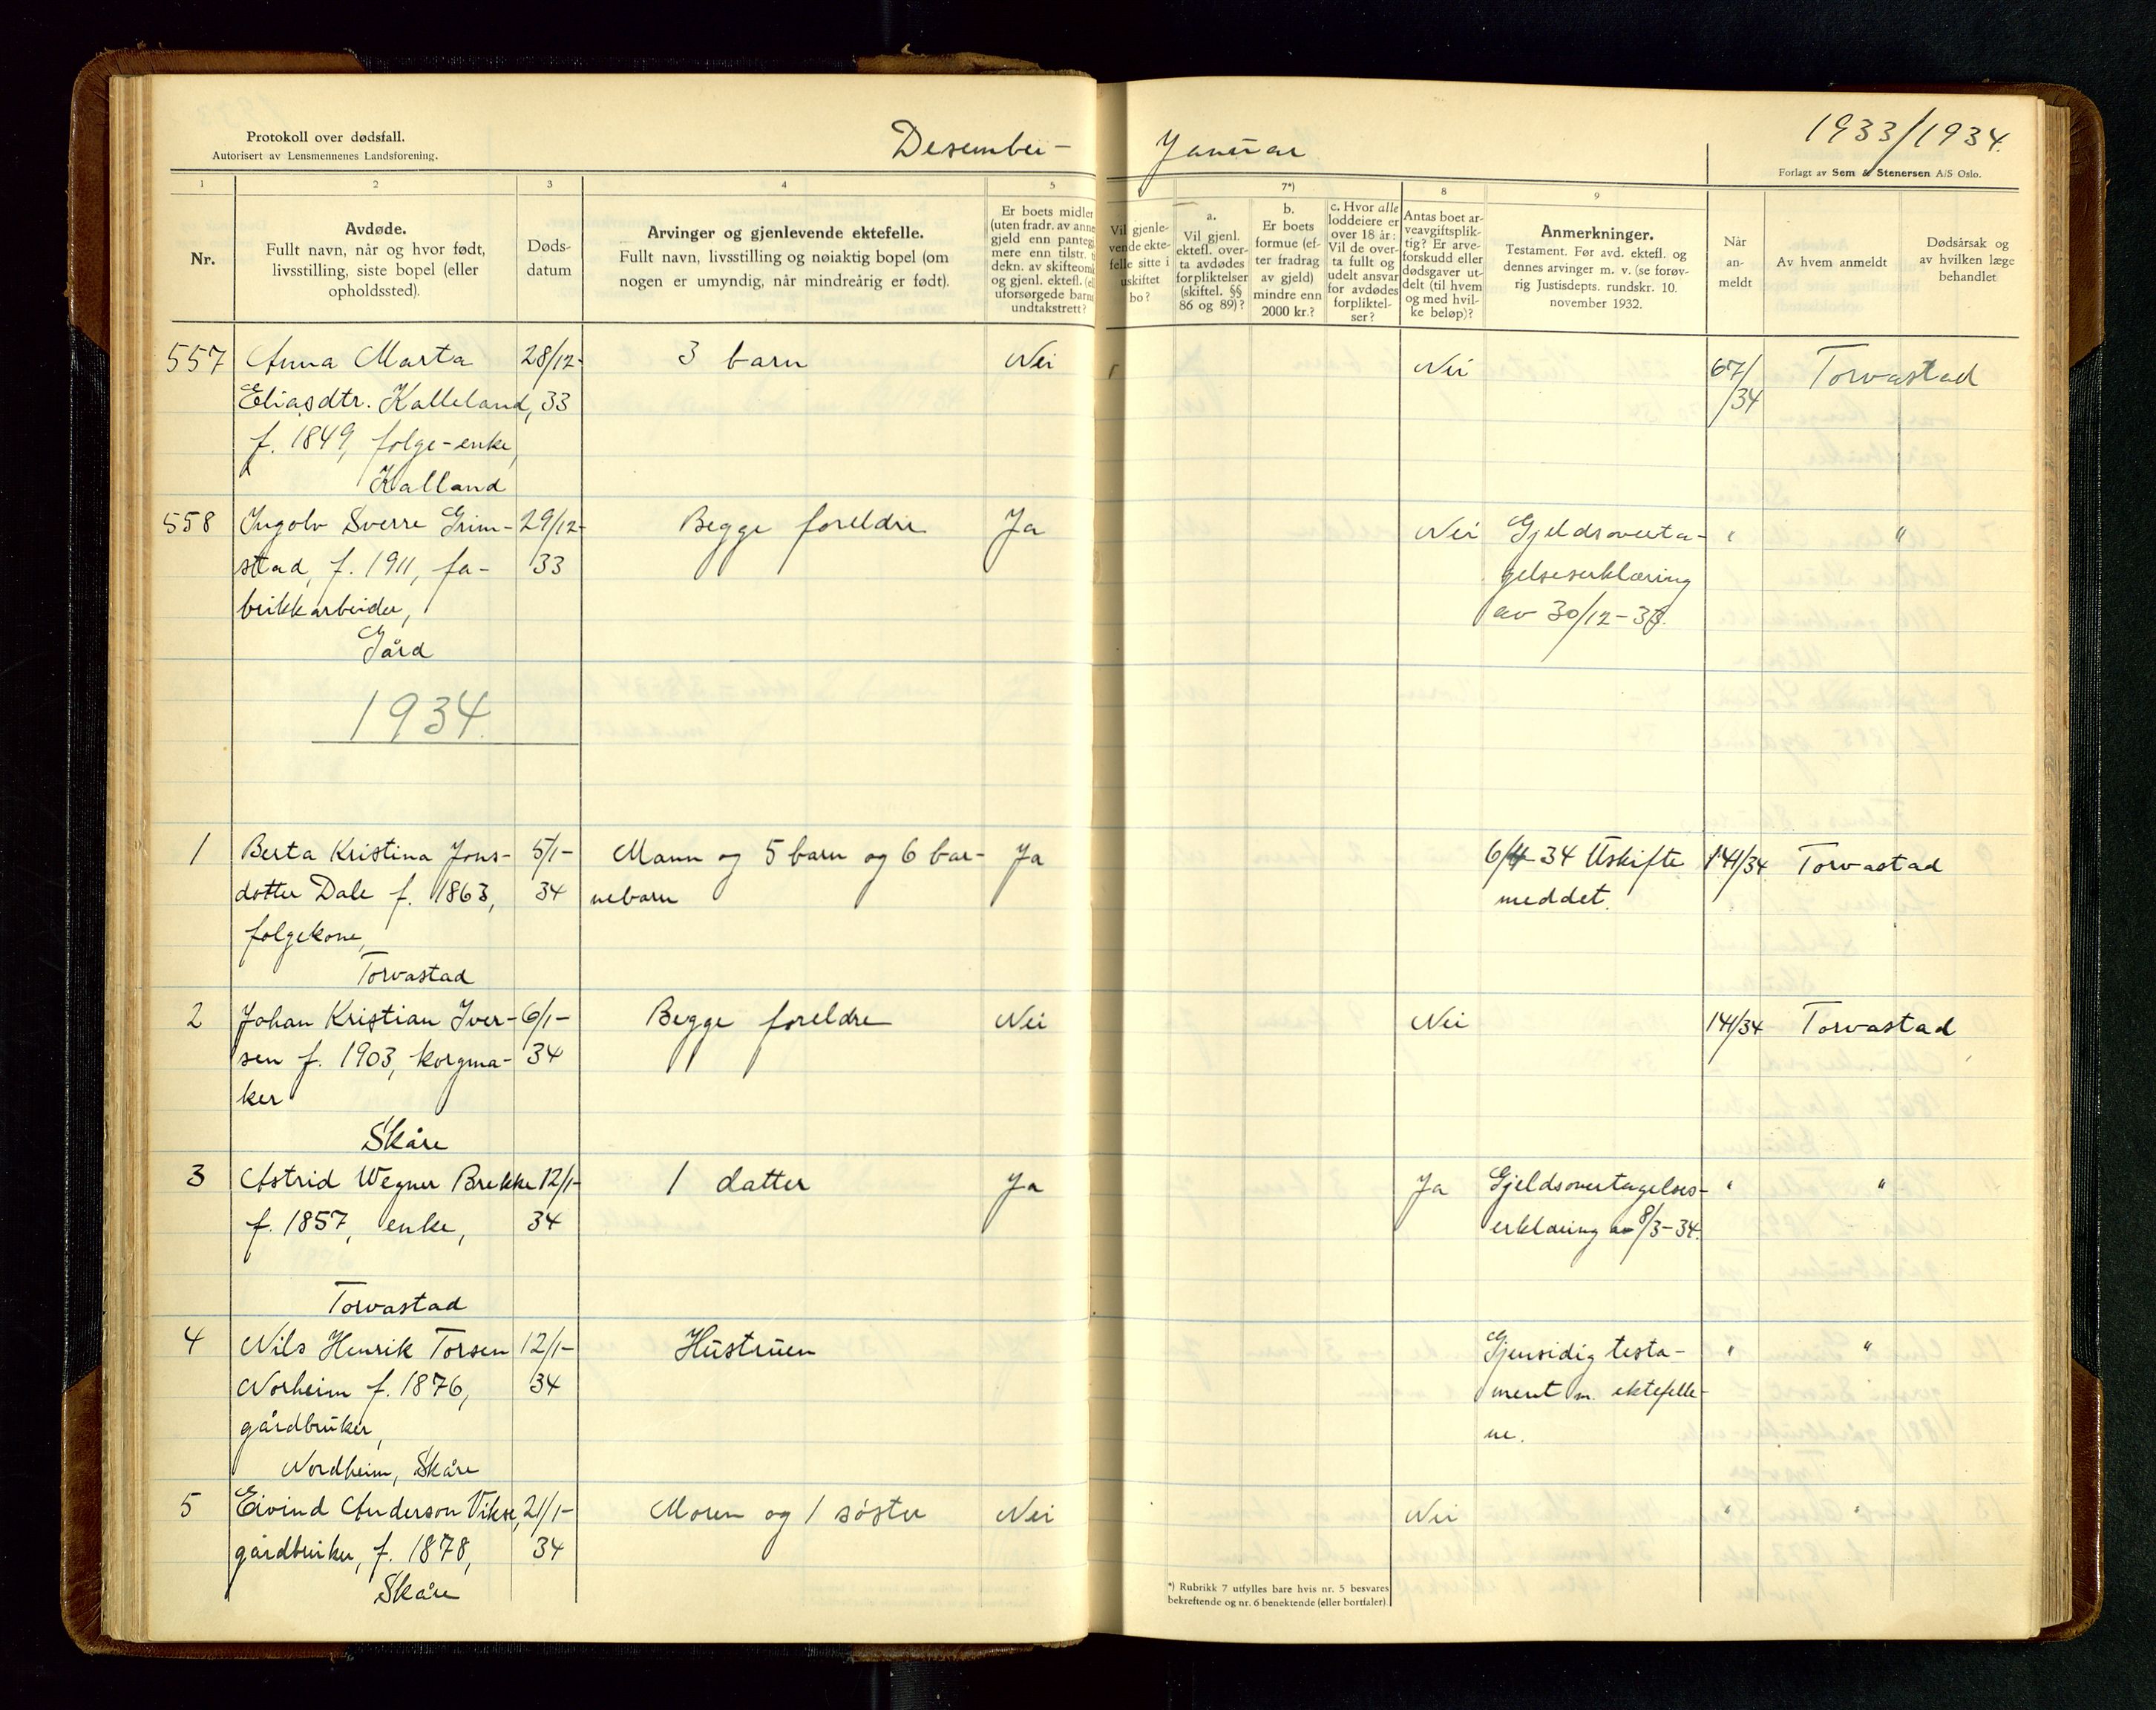 Protokoll over dødsfall.
Autorisert av Lensmennenes Landsforening.
Desember –
Januar
1933/1934.
Forlagt av Sem & Stenersen A/S Oslo.
1
2
3
4
5
7*)
8
9
Nr.
Avdøde.
Fullt navn, når og hvor født,
livsstilling, siste bopel (eller
opholdssted).
Døds-
datum
Arvinger og gjenlevende ektefelle.
Fullt navn, livsstilling og nøiaktig bopel (om
nogen er umyndig, når mindreårig er født).
Er boets midler
(uten fradr. av anne
gjeld enn panteg.
mere enn tilstr. t
dekn. av skifteom
og gjenl. ektefl. (el
uforsørgede barns
undtakstrett?
Vil gjenle-
vende ekte-
felle sitte i
uskiftet
bo?
a.
Vil gjenl.
ektefl. over-
ta avdødes
forpliktelser
(skiftel. §§
86 og 89)?
b.
Er boets
formue (ef-
ter fradrag
av gjeld)
mindre enn
2000 kr.?
c. Hvor alle
loddeiere er
over 18 år:
Vil de over-
ta fullt og
udelt ansvar
for avdødes
forpliktel-
ser?
Antas boet ar-
veavgiftsplik-
tig? Er arve-
forskudd eller
dødsgaver ut-
delt (til hvem
og med hvil-
ke beløp)?
Anmerkninger.
Testament. Før avd. ektefl. og
dennes arvinger m. v. (se forøv-
rig Justisdepts. rundskr. 10.
november 1932.
Når
an-
meldt
Av hvem anmeldt
Dødsårsak og
av hvilken læge
behandlet
557 Anna Marta 28/12- 3 barn Nei Nei 6/1/ Torvastad
Eliasdtr. Kalleland, 33 /34
f. 1849, følge-enke,
Kalland
558 Ingolv Sverre Grim- 29/12- Begge foreldre Ja Nei Gjeldsoverta- " "
stad, f. 1911, fa- 33 gelseserklæring
brikkarbeider, av 30/12-33.
Gård
1934.
1 Berta Kristina Jons- 5/1- Mann og 5 barn og 6 bar- Ja 6/4-34 Uskifte 14/1/34 Torvastad
dotter Dale f. 1863, 34 nebarn meddet.
følgekone,
Torvastad
2 Johan Kristian Iver- 6/1- Begge foreldre Nei Nei 14/1/34 Torvastad
sen f. 1903, korgma- 34
ker
Skåre
3 Astrid Wegner Brekke 12/1- 1 datter Ja Ja Gjeldsovertagelses- " "
f. 1857, enke, 34 erklæring av 8/3-34.
Torvastad
4 Nils Henrik Torsen 12/1- Hustruen Gjensidig testa- " "
Norheim f. 1876, 34 ment m. ektefelle-
gårdbruker, ne.
Nordheim, Skåre
5 Eivind Anderson Vikse, 21/1- Moren og 1 søster Nei Nei " "
gårdbruker, f. 1878, 34
Skåre
*) Rubrikk 7 utfylles bare hvis nr. 5 besvares
bekreftende og nr. 6 benektende (eller bortfaler).